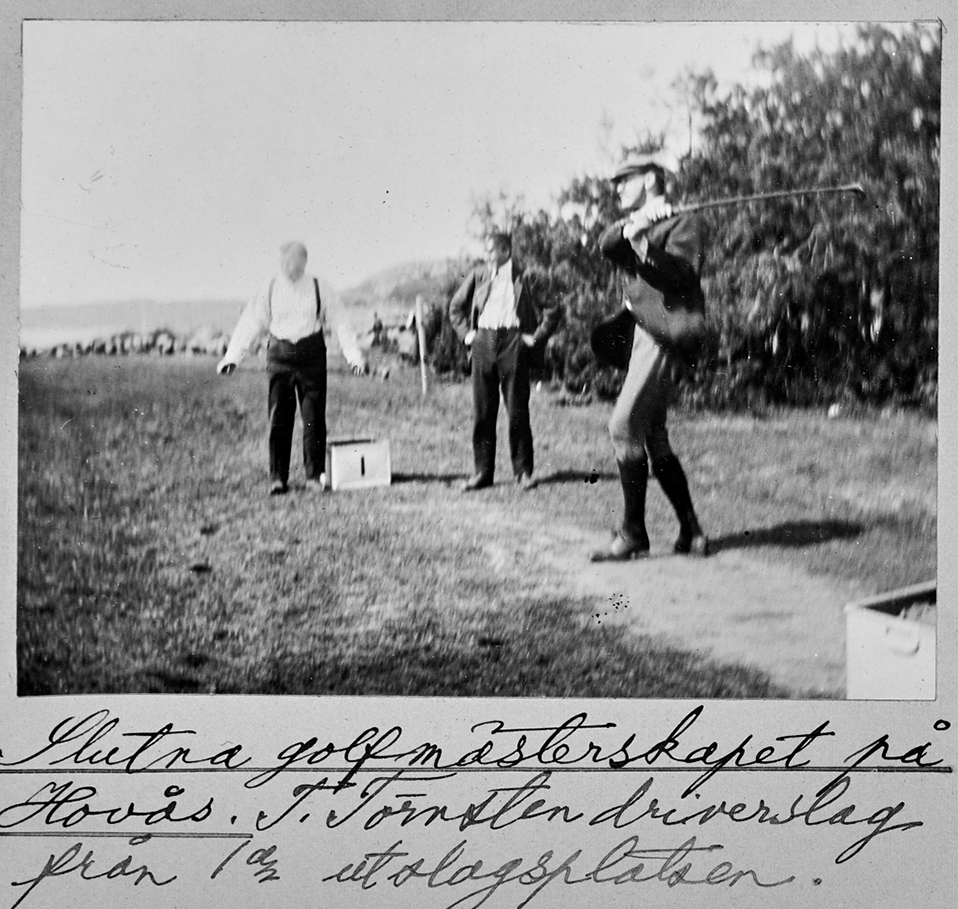 1
Slutna golfmästerskapet på
Hovås. T. Törnsten driverslag
från 1a utslagsplatsen.